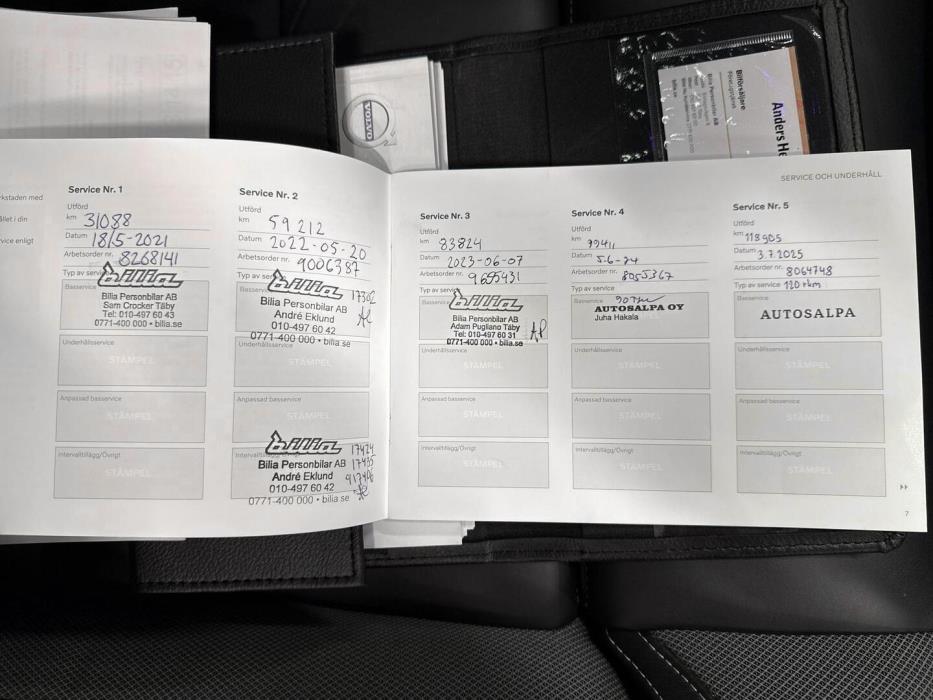 VOLVO
Bilia Personbilar AB
bilia.se
Bilförsäljare
Företagstjänst
Anders He
SERVICE OCH UNDERHÅLL
rkstaden med
ållet i din
vice enligt
Service Nr. 1
Utförd
km 31088
Datum 18/5-2021
Arbetsorder nr. 8268141
Typ av servi
bilia
Basservice
Bilia Personbilar AB
Sam Crocker Täby
Tel: 010-497 60 43
0771-400 000 • bilia.se
Underhållsservice
STÄMPEL
Anpassad basservice
STÄMPEL
Intervalltillägg/Övrigt
STÄMPEL
Service Nr. 2
Utförd
km 59 212
Datum 2022-05-20
Arbetsorder nr. 9006387
Typ av se
bilia 17302
Basservice
Bilia Personbilar AB
André Eklund
010-497 60 42
0771-400 000 • bilia.se
Underhållsservice
STÄMPEL
Anpassad basservice
STÄMPEL
bilia 17424
Intervalltillägg/Övrigt
Bilia Personbilar AB
André Eklund
010-497 60 42
0771-400 000 • bilia.se
Service Nr. 3
Utförd
km 83824
Datum 2023-06-07
Arbetsorder nr. 9655431
Typ av se
bilia
Basservice
Bilia Personbilar AB
Adam Pugliano Täby
Tel: 010-497 60 31
0771-400 000 • bilia.se
AP
Underhållsservice
STÄMPEL
Anpassad basservice
STÄMPEL
Intervalltillägg/Övrigt
STÄMPEL
Service Nr. 4
Utförd
km 99411
Datum 5-6-24
Arbetsorder nr. 8055367
Typ av service
Basservice
AUTOSALPA OY
Juha Hakala
Underhållsservice
STÄMPEL
Anpassad basservice
STÄMPEL
Intervalltillägg/Övrigt
STÄMPEL
Service Nr. 5
Utförd
km 118905
Datum 3.7.2025
Arbetsorder nr. 8064748
Typ av service 120 tkm
Basservice
AUTOSALPA
Underhållsservice
STÄMPEL
Anpassad basservice
STÄMPEL
Intervalltillägg/Övrigt
STÄMPEL
7